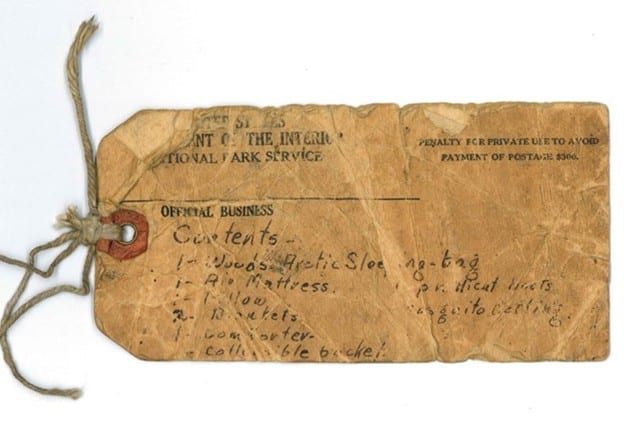 STATES
OF THE INTERIOR
NATIONAL PARK SERVICE
PENALTY FOR PRIVATE USE TO AVOID
PAYMENT OF POSTAGE $300.
OFFICIAL BUSINESS
Contents -
1- Woods Arctic Sleeping-bag
1- Air Mattress.
1- Pillow
2- Blankets
1- Comforter-
- Collapsible bucket
1 pr. Mucat boots
Mosquito Netting